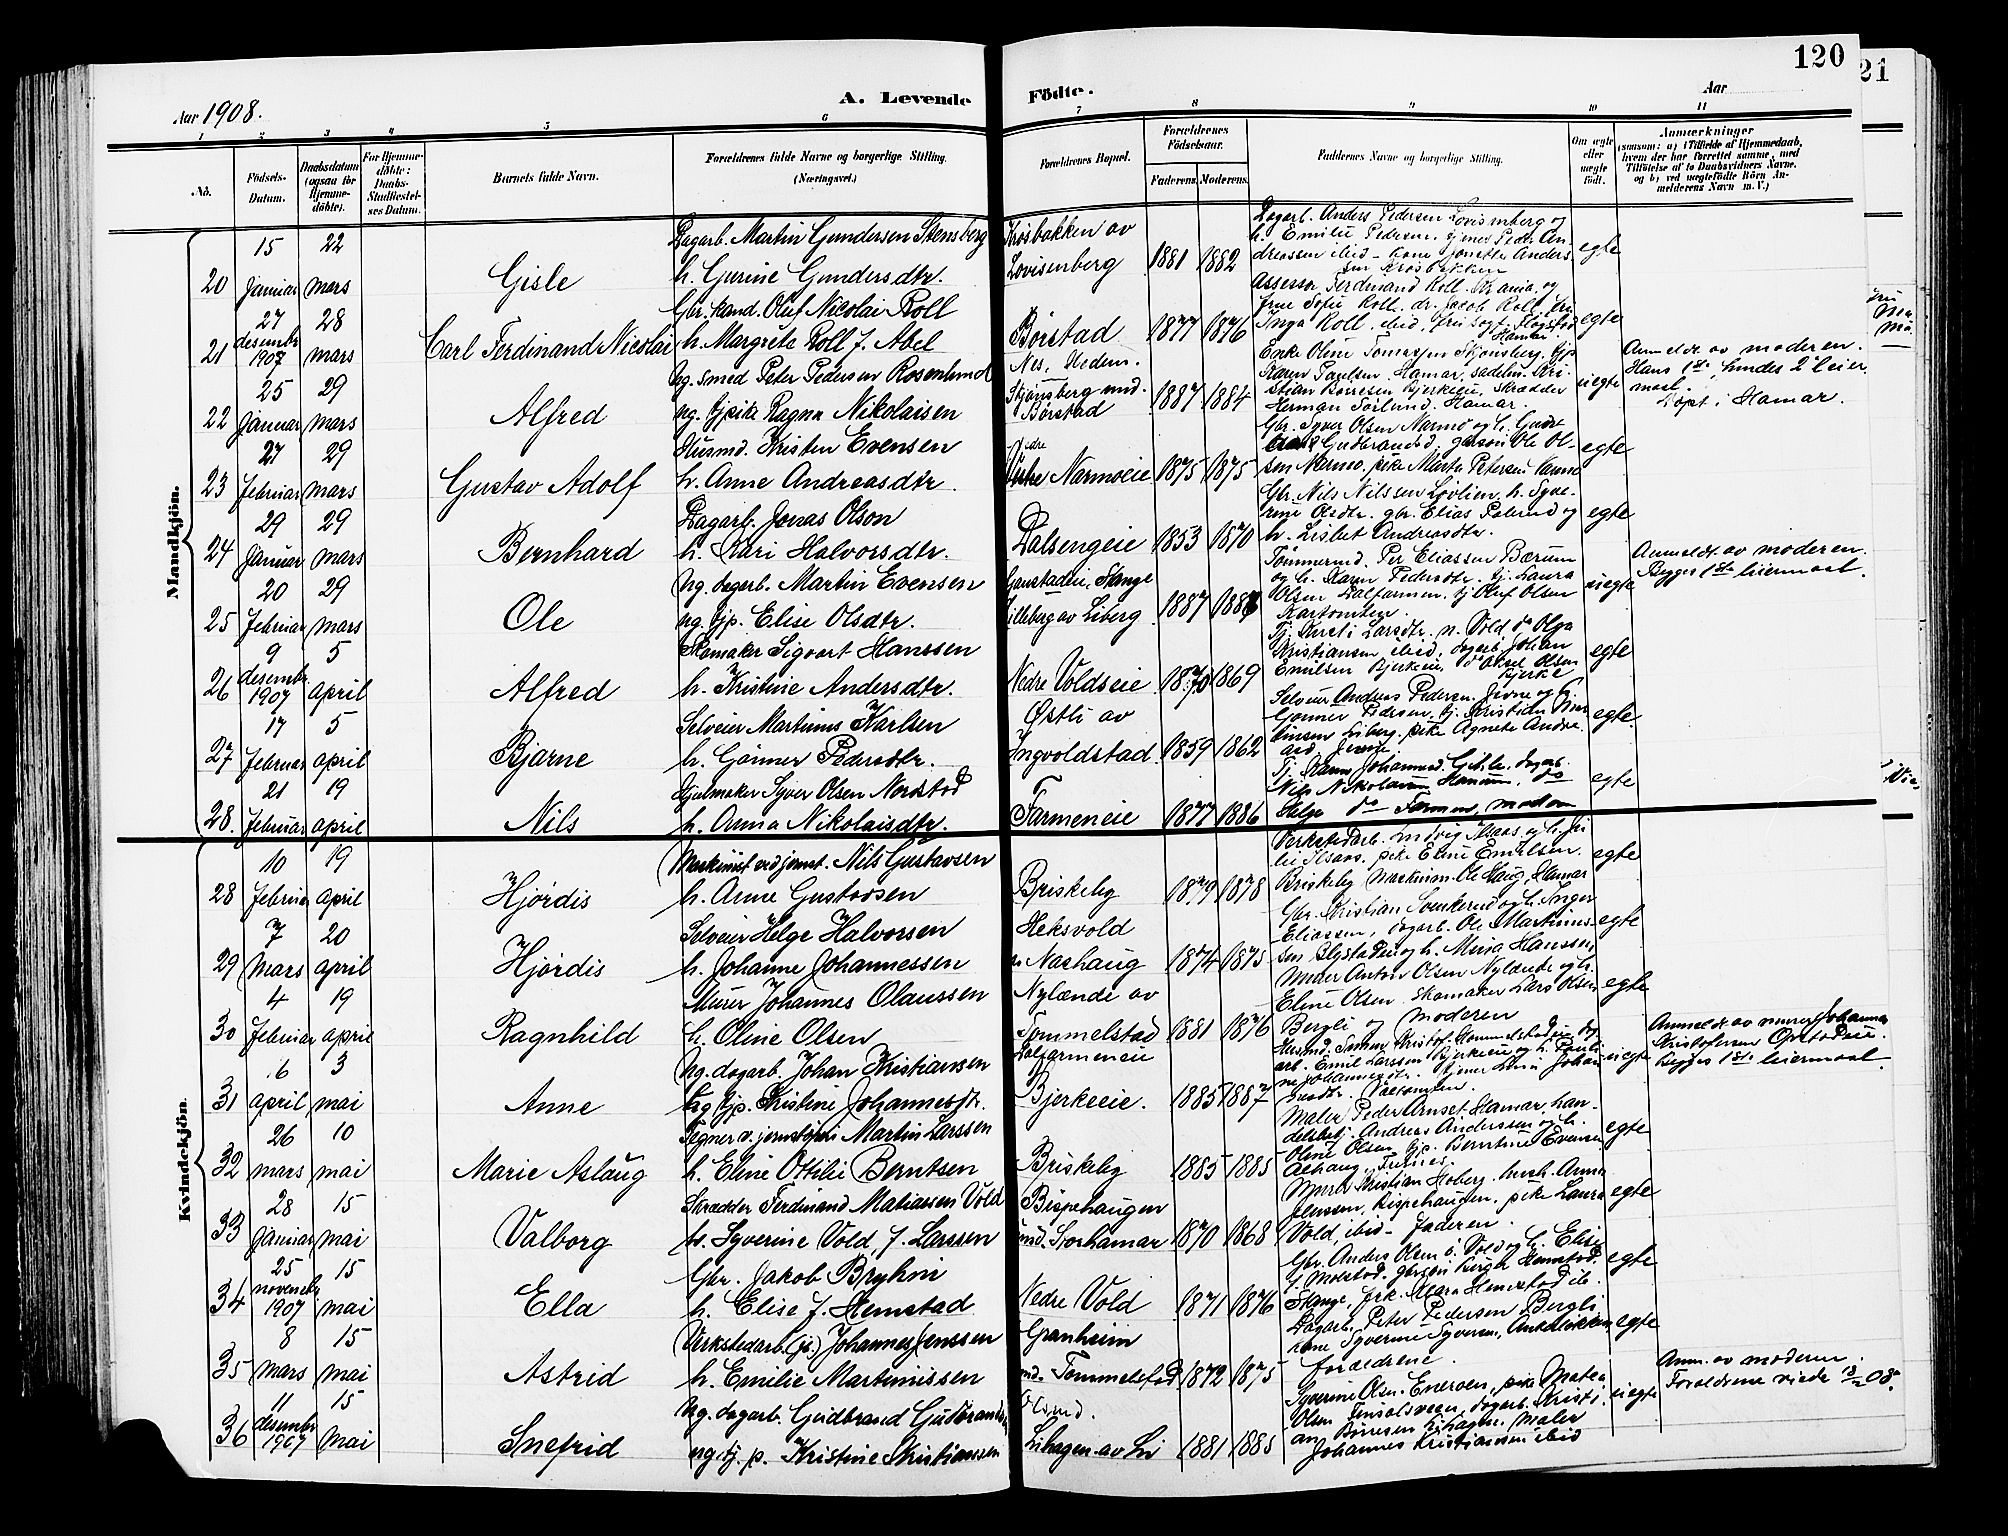 120
21
Aar 1908.
A. Levende Födte.
Aar
1 2 3 4 5 6 7 8 9 10 11
No.
Födsels-Datum.
Daabsdatum (ogsaa for Hjemme-döbte).
For Hjemme-döbte: Daabs-Stadfæstel-ses Datum.
Barnets fulde Navn.
Forældrenes fulde Navne og borgerlige Stilling. (Næringsvei.)
Forældrenes Bopæl.
Forældrenes Födselsaar.
Faderens. Moderens.
Faddernes Navne og borgerlige Stilling.
Om ægte eller uægte födt.
Anmærkninger
(saasom: a) i Tilfælde af Hjemmedaab, hvem der har forrettet samme, med Tilföielse af to Daabsvidners Navne. og b) ved uægtefödte Börn An-melderens Navn m. V.)
Mandkjön.
20 15 Januar 22 mars Gisle
Dagarb. Martin Gundersen Stensberg
h. Gurine Gundersdtr.
Krosbakken av
Lovisenberg 1881 1882
Dagarb. Anders Pedersen Lovisenberg og
h. Emilie Pedersen.
egte
21 27 desembr 1907 28 mars Carl Ferdinand Nicolai
Gbr. kand. Oluf Nicolai Roll
h. Margrete Roll f. Abel
Börstad
Nes, Hedem. 1877 1876
Assessor Ferdinand Roll. Krania, og
frue Sofie Roll. dr. Jacob Roll, fru
Inga Roll, ibid,
Hamar
egte
22 25 Januar 29 mars Alfred
Ug. smed Peter Pedersen Rosenlund
ug. tjpike Ragna Nikolaisen
Skjönsberg und.
Börstad 1887 1884
Enke Oline Tomassen Skjönsberg. tjp
Karen Paulsen. Hamar, sadelm. Kri-
stian Börresen Bjerkeeie, skrædder
Herman Sörlund. Hamar.
uegte
Anmeldt av moderen.
Hans 1ste, hendes 2det leier
maal.
Döpt i Hamar.
23 27 Februar 29 mars Gustav Adolf
Husmd. Kristen Evensen
h. Anne Andreasdtr.
Narmoeie 1875 1875
Gbr. Syver Olsen Narmo og h.
Gudbrandsd. gbrson Ole Ol-
sen Narmo. pike Marta Petersen
egte
24 29 Januar 29 mars Bernhard
Dagarb. Jonas Olson
h. Kari Halvorsdtr.
Dalsengeie 1853 1870
Gbr. Nils Nilssen Lövlien, h. Syve-
rine Olsdtr. gbr. Elias og
h. Lisbet Andreasdtr.
egte
25 20 Februar 29 mars Ole
Ug. dagarb. Martin Evensen
ug. tjp. Elise Olsdtr.
Gaustadeie, Stange
Lilleberg av Liberg 1887
Tömmermd. Per Eliassen Bærum
og h. Karen Pedersdtr. tj. Laura
Olsen Dalfarmen. tj Oluf Olsen
uegte
Anmeldt av moderen.
Begges 1ste leiermaal.
26 9 desembr. 1907 5 april Alfred
Skomaker Sigvart Hanssen
h. Kristine Andersdtr.
Nedre Voldseie 1870 1869
Tj. Kirsti Larsdtr. n. Vold, do Olga
Kristiansen ibid, dagarb. Johan
Emilsen Bjerkeeie, do Aksel Olsen
Bjerke
egte
27 17 Februar 5 april Bjarne
Selveier Martinus Karlsen
h. Gönner Pedersdtr.
Østli av
Ingvoldstad 1859 1862
Selveier Andreas Pedersen. Jevne og h.
Gönner Pedersen, tj. Kristian
Liberg. pike Agnete Andre
Jevne.
egte
28. 21 Februar 19 april Nils
Hjulmaker Syver Olsen Nordstad
h. Anna Nikolaisdtr.
Farmeneie 1877 1886
Nils Nikolaisen
Helge do Farmen, moderen
egte
Kvindekjön.
28 10 Februar 19 april Hjördis
Maskinist ved jernst. Nils Gustavsen
h. Anne Gustavsen
Briskeby 1879 1878
Verkstedarb. Ludvig Ilsaas og h. Ju
lie Ilsaas. pike Eline Emilsen.
Briskeby maskinm. Ole Haug, Hamar
egte
29 7 mars 20 april Hjördis
Selveier Helge Halvorsen
h. Johanne Johannessen
Heksvold
Nashaug 1874 1875
Gbr. Kristian Svenkerud og h. Inger
Eliassen, dagarb. Ole Martinus-
sen og h. Mina Hanssen
egte
30 4 Februar 19 april Ragnhild
Murer Johannes Olaussen
h. Oline Olsen
Nylænde av
Tommelstad 1881 1876
Murer Anton Olsen Nylænde og h.
Eline Olsen. skomaker Lars Olsen
Bergli og moderen
egte
31 6 april 3 mai Anne
Ug. dagarb. Johan Kristiansen
ug tjp. Kristine Johannesdtr.
Dalfarmeneie
Bjerkeeie. 1885 1887
arb. Emil Larssen Bjerkeeie og h. Pauli-
ne Johannesdtr.
uegte
Anmeldt av murer Johannes
Kristofersen Opstadeie.
Begges 1ste leiermaal.
32 26 mars 10 mai Marie Aslaug
Tegner v. jernstöperi Martin Larssen
h. Eline Ottilie Berntsen
Briskeby 1885 1885
Maler Peder Arnset, Hamar, han-
delsbetj. Andreas Anderssen og h.
Oline Olsen tjp. Berntine Evensen
egte
33 28 Januar 15 mai Valborg
Skrædder Ferdinand Matiassen Vold
h. Syverine Vold, f. Larssen
Bispehaugen
und. Storhamar 1870 1868
Murer Kristian Hoberg, hush. Anna
Jenssen, Bispehaugen, pike Laura
Vold, ibid - faderen.
egte
34 25 novembr 1907 15 mai Ella
Gbr. Jakob Bryhni
h. Elise f. Hemstad
Nedre Vold 1871 1876
Gbr. Anders Olsen ö. Vold og h. Elise
f. Molstad. gbrsön Birger Hemstad.
Stange, frk. Mara Hemstad ib.
egte
35 8 mars 15 mai Astrid
Verkstedarb. (js.) Johannes Jenssen
h. Emilie Martinissen
Granheim
und. Tommelstad 1872 1875
Dagarb. Peter Pedersen Bergli,
kone Syverine Syversen,
forældrene.
egte
36 11 desembr 1907 15 mai Snefrid
Ug. dagarb. Gudbrand Gudbrandsen
ug. tj. p. Kristine Kristianssen
Lihagen av Li 1881 1885
Syverine Olsen. Eneroen, pike Matea
Olsen Finsalsveien, dagarb. Kristi-
an Börresen Lihagen. maler
Johannes Kristiansen ibid
uegte
Anm. av moderen.
Forældrene viede 08.